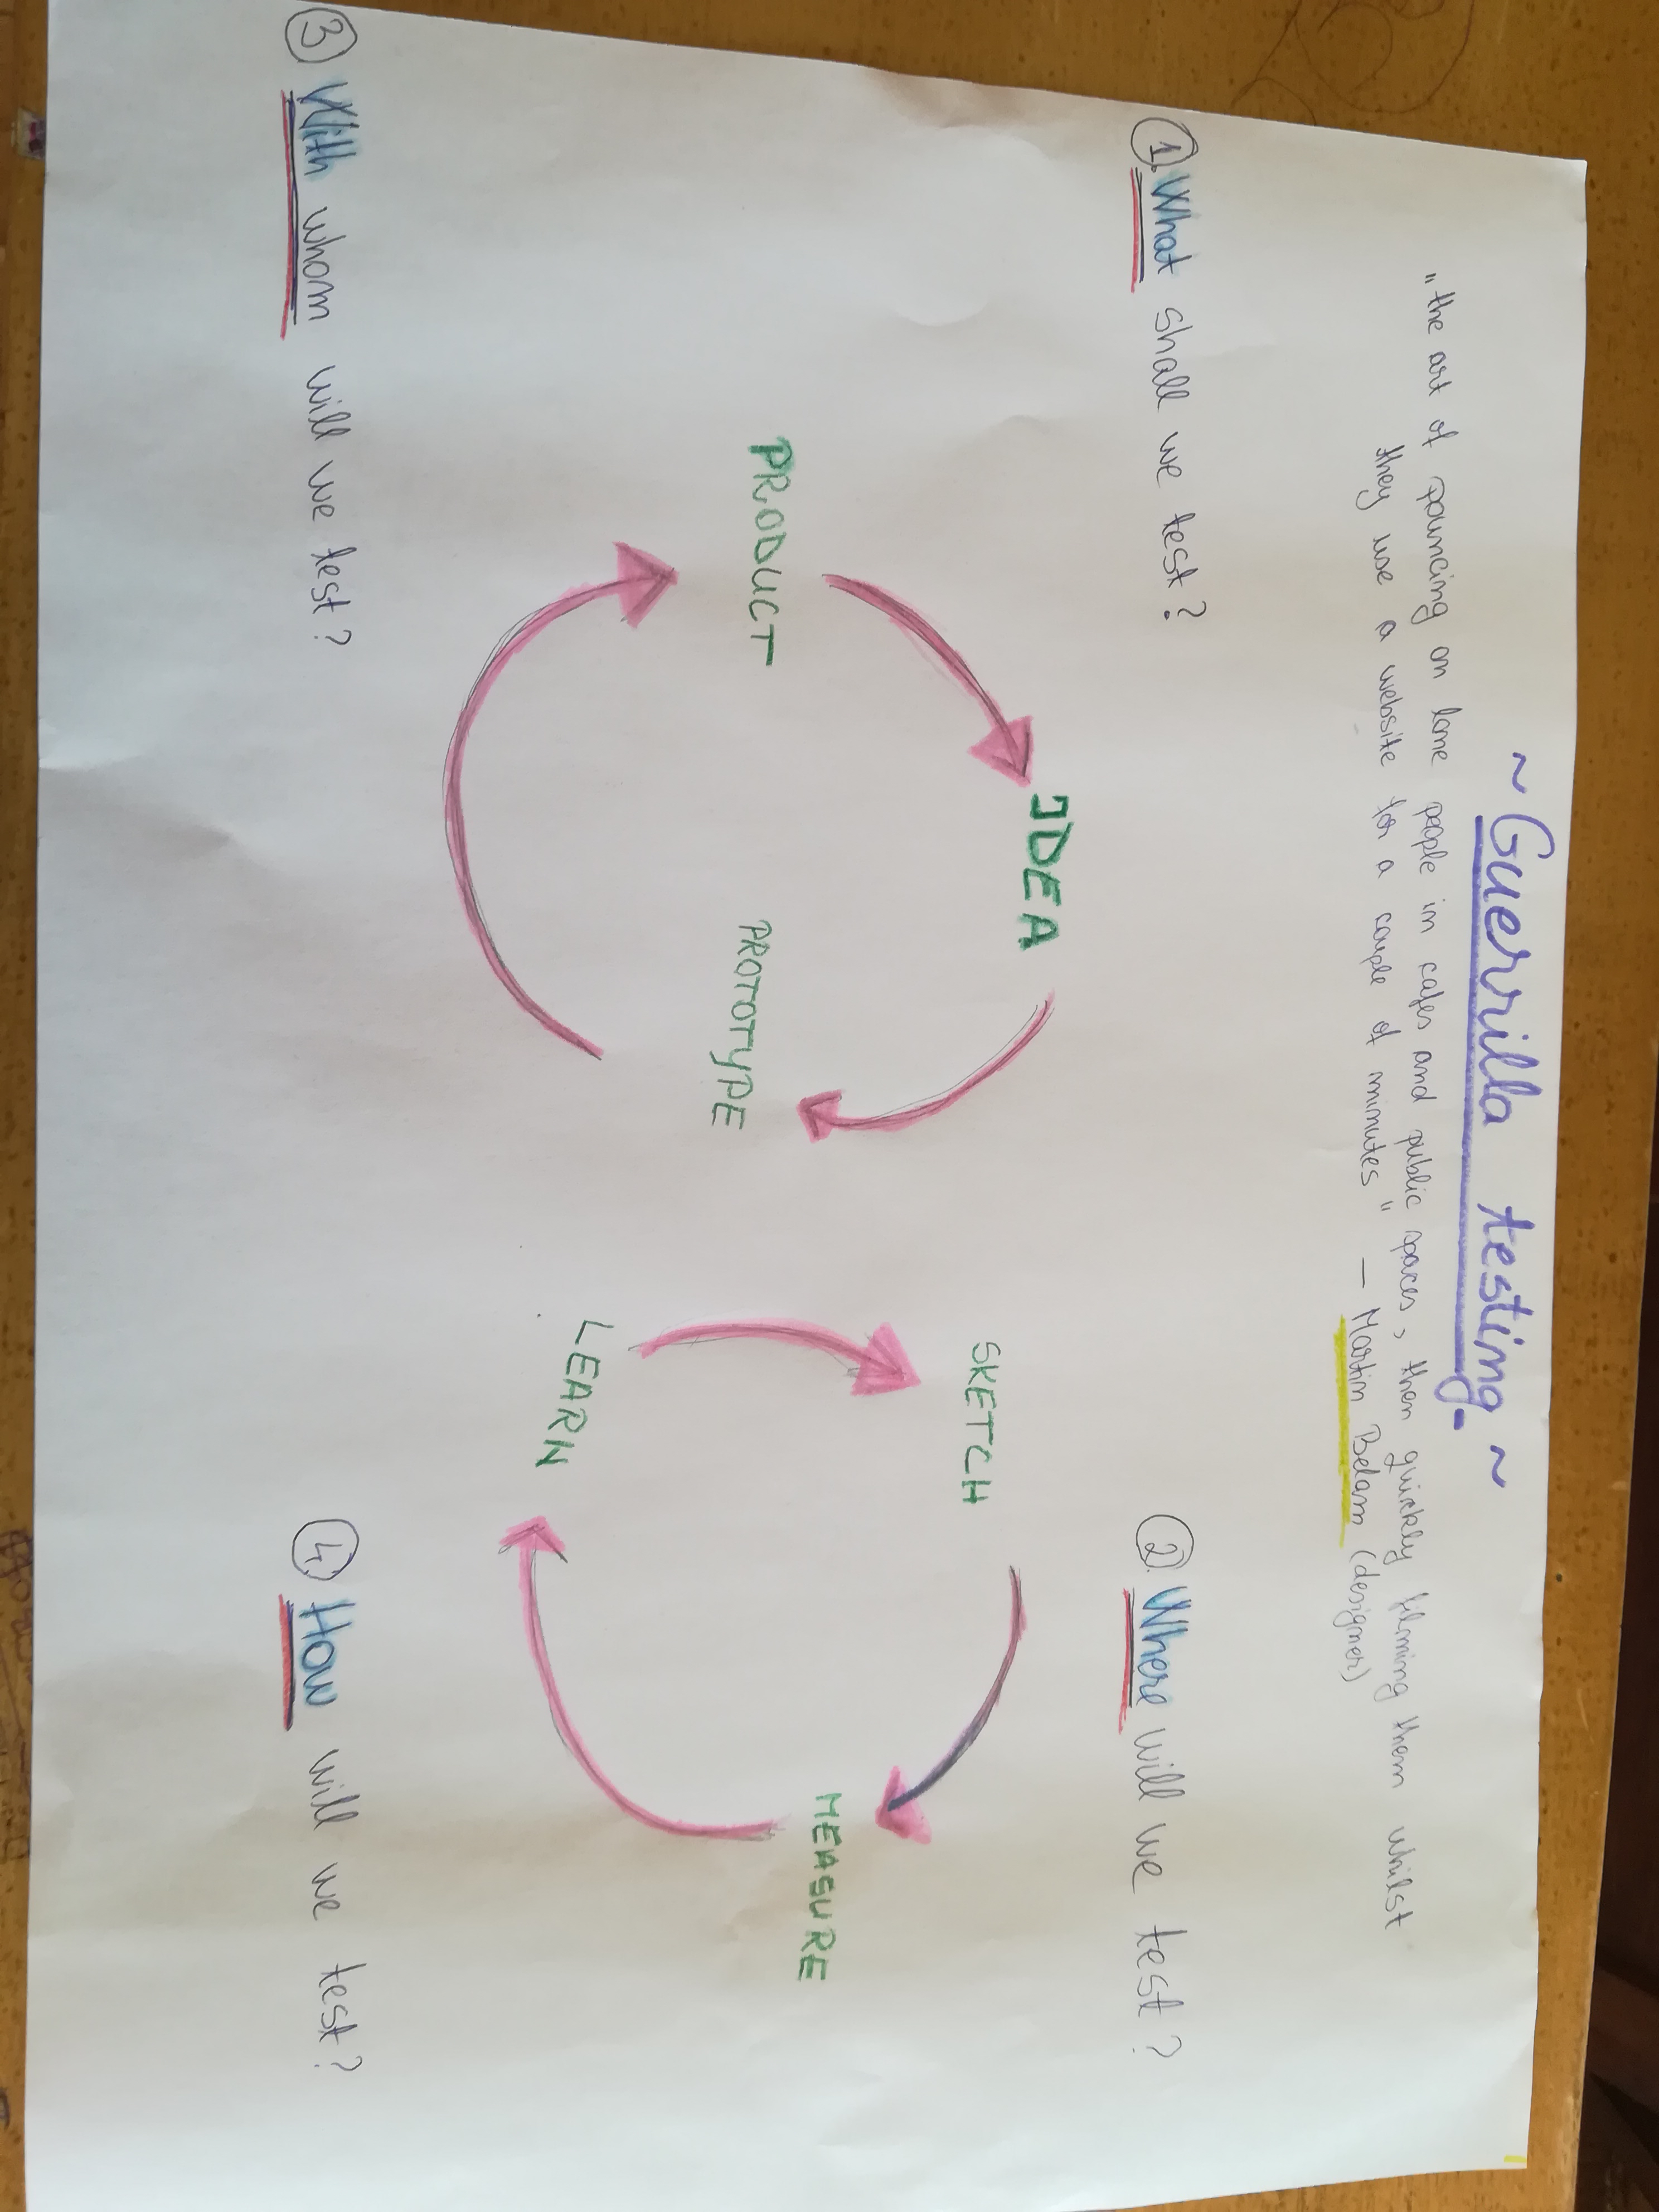 ~ Guerrilla testing ~
"the art of pouncing on lone people in cafes and public spaces, then quickly filming them whilst
they use a website for a couple of minutes" – Martin Belam (designer)
1. What shall we test?
2. Where will we test?
IDEA
PRODUCT
PROTOTYPE
SKETCH
MEASURE
LEARN
3 With whom will we test?
4. How will we test?